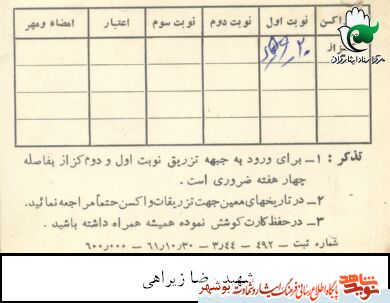 اکسن نوبت اول نوبت دوم نوبت سوم اعتبار امضاء ومهر
کزاز
تذکر : ۱- برای ورود به جبهه تزریق نوبت اول و دوم کزاز بفاصله
چهار هفته ضروری است .
۲- در تاریخهای معین جهت تزریقات واکسن حتماً مراجعه نمائید.
۳- در حفظ کارت کوشش نموده همیشه همراه داشته باشید .
شماره ثبت - ۴۹۲ - ۳٫۴۴ - ۶۱٫۱۰٫۳۰ - ۶۰۰٫۰۰۰
شهید رضا زیراهی
مرکز اسناد ایثارگران
نوید شاهد
پایگاه اطلاع رسانی فرهنگ ایثار و شهادت
بوشهر